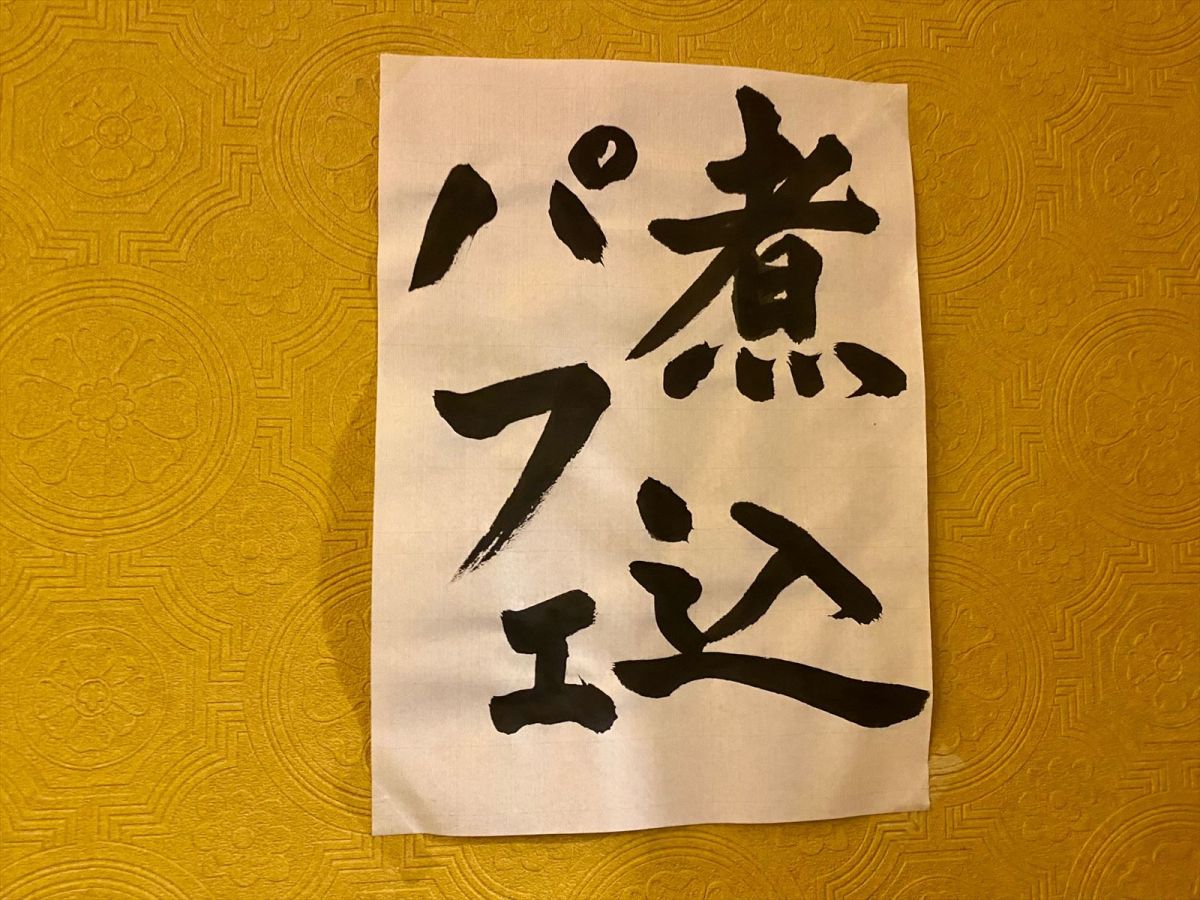 煮込
パフェ